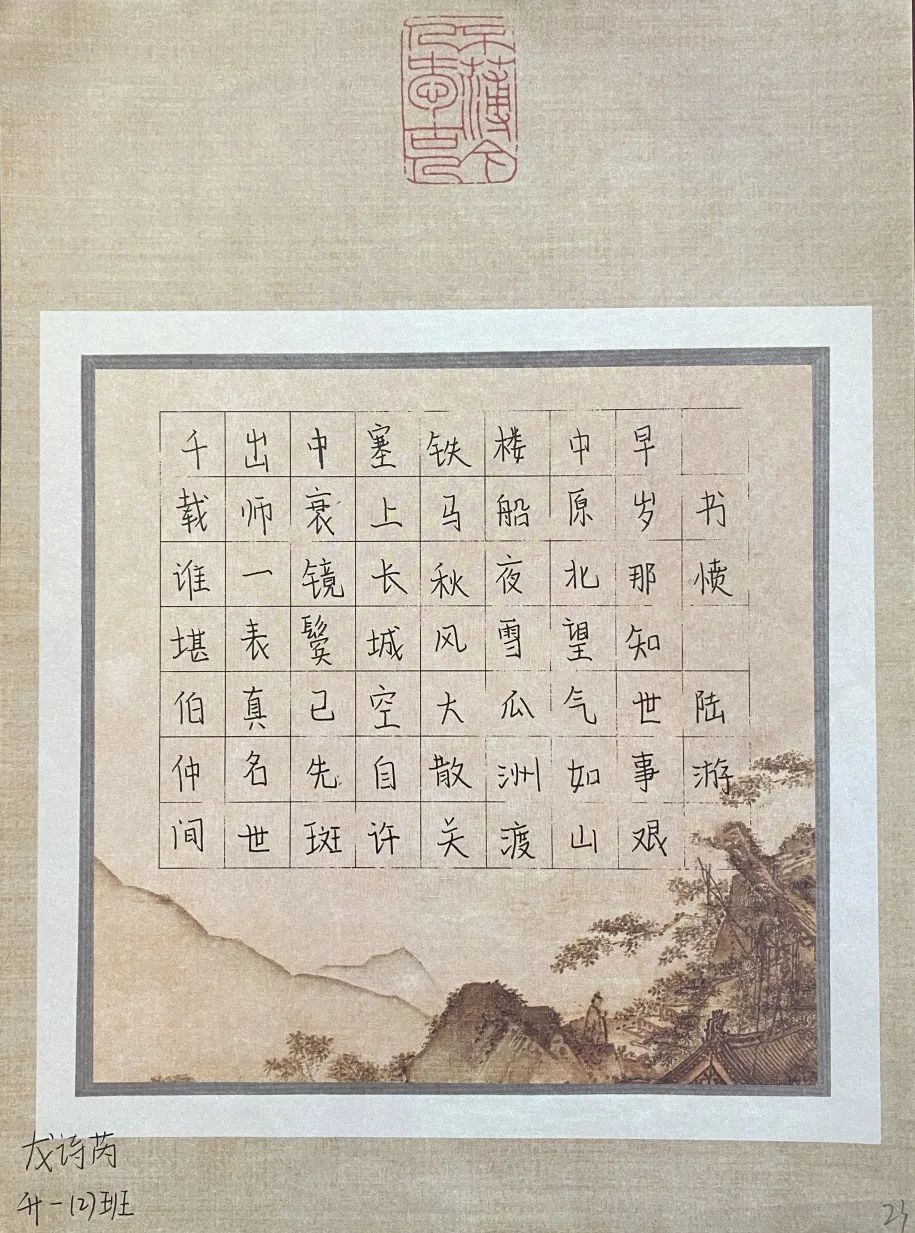 不薄今
人爱古人
书愤 陆游
早岁那知世事艰
中原北望气如山
楼船夜雪瓜洲渡
铁马秋风大散关
塞上长城空自许
中衰镜鬓已先斑
出师一表真名世
千载谁堪伯仲间
诗芮
升一(2)班
23